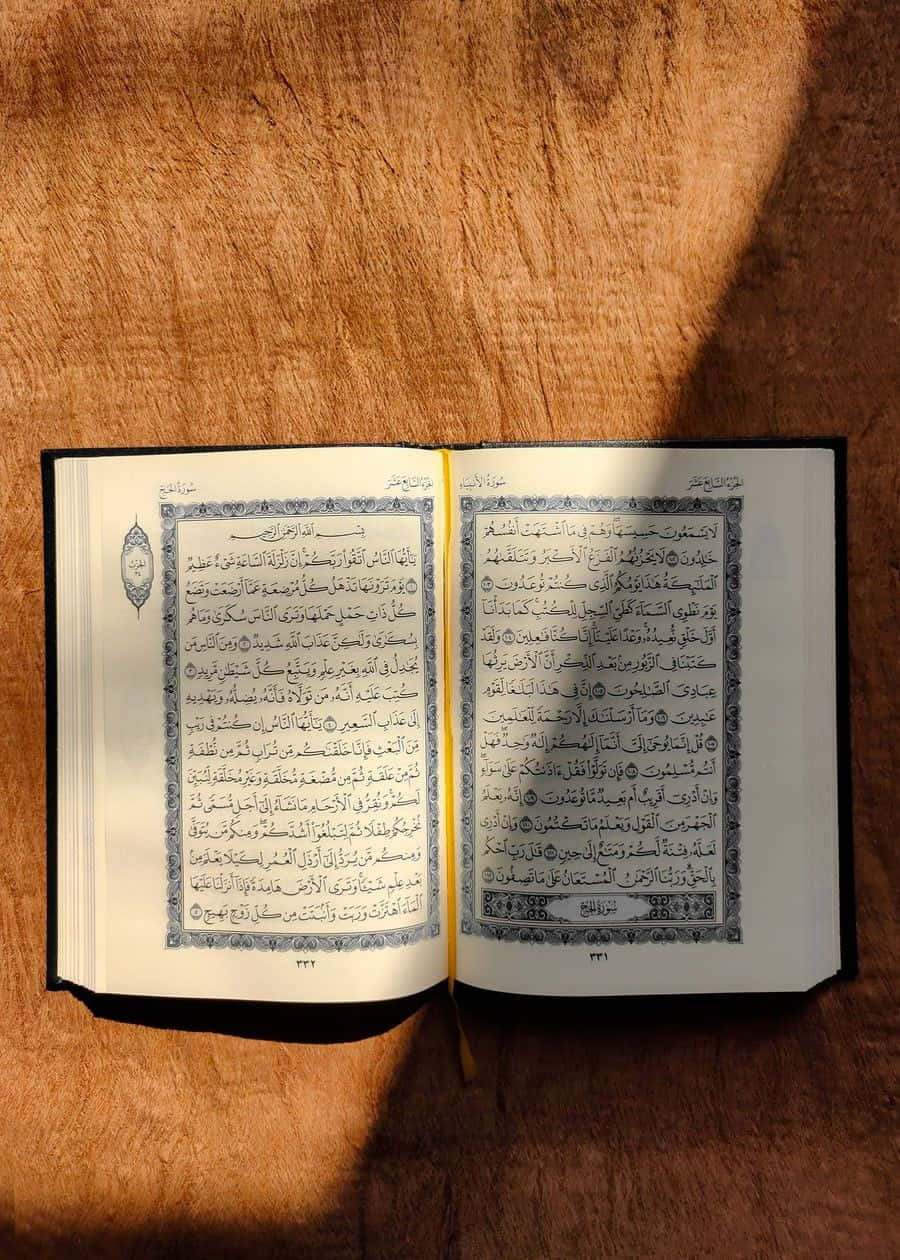 الجُزْءُ السَّابِعَ عَشَرَ سُورَةُ الأَنبِيَاءِ
لَا يَسْمَعُونَ حَسِيسَهَا ۖ وَهُمْ فِي مَا ٱشْتَهَتْ أَنفُسُهُمْ
خَٰلِدُونَ ١٠٢ لَا يَحْزُنُهُمُ ٱلْفَزَعُ ٱلْأَكْبَرُ وَتَتَلَقَّىٰهُمُ
ٱلْمَلَٰٓئِكَةُ هَٰذَا يَوْمُكُمُ ٱلَّذِي كُنتُمْ تُوعَدُونَ ١٠٣
يَوْمَ نَطْوِي ٱلسَّمَآءَ كَطَيِّ ٱلسِّجِلِّ لِلْكُتُبِ ۚ كَمَا بَدَأْنَآ
أَوَّلَ خَلْقٍ نُّعِيدُهُۥ ۚ وَعْدًا عَلَيْنَآ ۚ إِنَّا كُنَّا فَٰعِلِينَ ١٠٤ وَلَقَدْ
كَتَبْنَا فِي ٱلزَّبُورِ مِنۢ بَعْدِ ٱلذِّكْرِ أَنَّ ٱلْأَرْضَ يَرِثُهَا
عِبَادِيَ ٱلصَّٰلِحُونَ ١٠٥ إِنَّ فِي هَٰذَا لَبَلَٰغًا لِّقَوْمٍ
عَٰبِدِينَ ١٠٦ وَمَآ أَرْسَلْنَٰكَ إِلَّا رَحْمَةً لِّلْعَٰلَمِينَ
١٠٧ قُلْ إِنَّمَا يُوحَىٰٓ إِلَيَّ أَنَّمَآ إِلَٰهُكُمْ إِلَٰهٌ وَٰحِدٌ ۖ فَهَلْ
أَنتُم مُّسْلِمُونَ ١٠٨ فَإِن تَوَلَّوْا۟ فَقُلْ ءَاذَنتُكُمْ عَلَىٰ سَوَآءٍ ۖ
وَإِنْ أَدْرِيٓ أَقَرِيبٌ أَم بَعِيدٌ مَّا تُوعَدُونَ ١٠٩ إِنَّهُۥ يَعْلَمُ
ٱلْجَهْرَ مِنَ ٱلْقَوْلِ وَيَعْلَمُ مَا تَكْتُمُونَ ١١٠ وَإِنْ أَدْرِي
لَعَلَّهُۥ فِتْنَةٌ لَّكُمْ وَمَتَٰعٌ إِلَىٰ حِينٍ ١١١ قَٰلَ رَبِّ ٱحْكُم
بِٱلْحَقِّ ۗ وَرَبُّنَا ٱلرَّحْمَٰنُ ٱلْمُسْتَعَانُ عَلَىٰ مَا تَصِفُونَ ١١٢
سُورَةُ الحَجِّ
٣٣١
الجُزْءُ السَّابِعَ عَشَرَ سُورَةُ الحَجِّ
بِسْمِ ٱللَّهِ ٱلرَّحْمَٰنِ ٱلرَّحِيمِ
يَٰٓأَيُّهَا ٱلنَّاسُ ٱتَّقُوا۟ رَبَّكُمْ ۚ إِنَّ زَلْزَلَةَ ٱلسَّاعَةِ شَيْءٌ عَظِيمٌ
١ يَوْمَ تَرَوْنَهَا تَذْهَلُ كُلُّ مُرْضِعَةٍ عَمَّآ أَرْضَعَتْ وَتَضَعُ
كُلُّ ذَاتِ حَمْلٍ حَمْلَهَا وَتَرَى ٱلنَّاسَ سُكَٰرَىٰ وَمَا هُم
بِسُكَٰرَىٰ وَلَٰكِنَّ عَذَابَ ٱللَّهِ شَدِيدٌ ٢ وَمِنَ ٱلنَّاسِ مَن
يُجَٰدِلُ فِي ٱللَّهِ بِغَيْرِ عِلْمٍ وَيَتَّبِعُ كُلَّ شَيْطَٰنٍ مَّرِيدٍ ٣
كُتِبَ عَلَيْهِ أَنَّهُۥ مَن تَوَلَّاهُ فَأَنَّهُۥ يُضِلُّهُۥ وَيَهْدِيهِ
إِلَىٰ عَذَابِ ٱلسَّعِيرِ ٤ يَٰٓأَيُّهَا ٱلنَّاسُ إِن كُنتُمْ فِي رَيْبٍ
مِّنَ ٱلْبَعْثِ فَإِنَّا خَلَقْنَٰكُم مِّن تُرَابٍ ثُمَّ مِن نُّطْفَةٍ
ثُمَّ مِنْ عَلَقَةٍ ثُمَّ مِن مُّضْغَةٍ مُّخَلَّقَةٍ وَغَيْرِ مُخَلَّقَةٍ لِّنُبَيِّنَ
لَكُمْ ۚ وَنُقِرُّ فِي ٱلْأَرْحَامِ مَا نَشَآءُ إِلَىٰٓ أَجَلٍ مُّسَمًّى ثُمَّ
نُخْرِجُكُمْ طِفْلًا ثُمَّ لِتَبْلُغُوٓا۟ أَشُدَّكُمْ ۖ وَمِنكُم مَّن يُتَوَفَّىٰ
وَمِنكُم مَّن يُرَدُّ إِلَىٰٓ أَرْذَلِ ٱلْعُمُرِ لِكَيْلَا يَعْلَمَ مِنۢ
بَعْدِ عِلْمٍ شَيْـًٔا ۚ وَتَرَى ٱلْأَرْضَ هَامِدَةً فَإِذَآ أَنزَلْنَا عَلَيْهَا
ٱلْمَآءَ ٱهْتَزَّتْ وَرَبَتْ وَأَنۢبَتَتْ مِن كُلِّ زَوْجٍۭ بَهِيجٍ ٥
٣٣٢
الحِزْبُ
٣٤